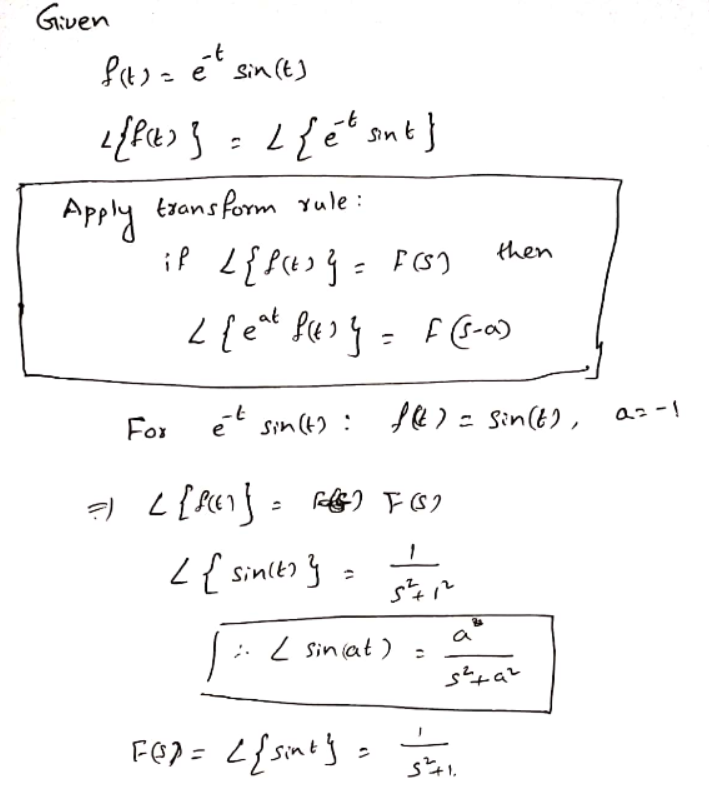 Given
f(t) = e^-t sin(t)
L{f(t)} = L{e^-t sint}
Apply transform rule:
if L{f(t)} = F(s) then
L{e^at f(t)} = F(s-a)
For e^-t sin(t): f(t) = sin(t), a=-1
⇒ L{f(t)} = F(s)
L{sin(t)} = 1/(s^2+1^2)
∴ L sin(at) = a/(s^2+a^2)
F(s) = L{sint} = 1/(s^2+1).